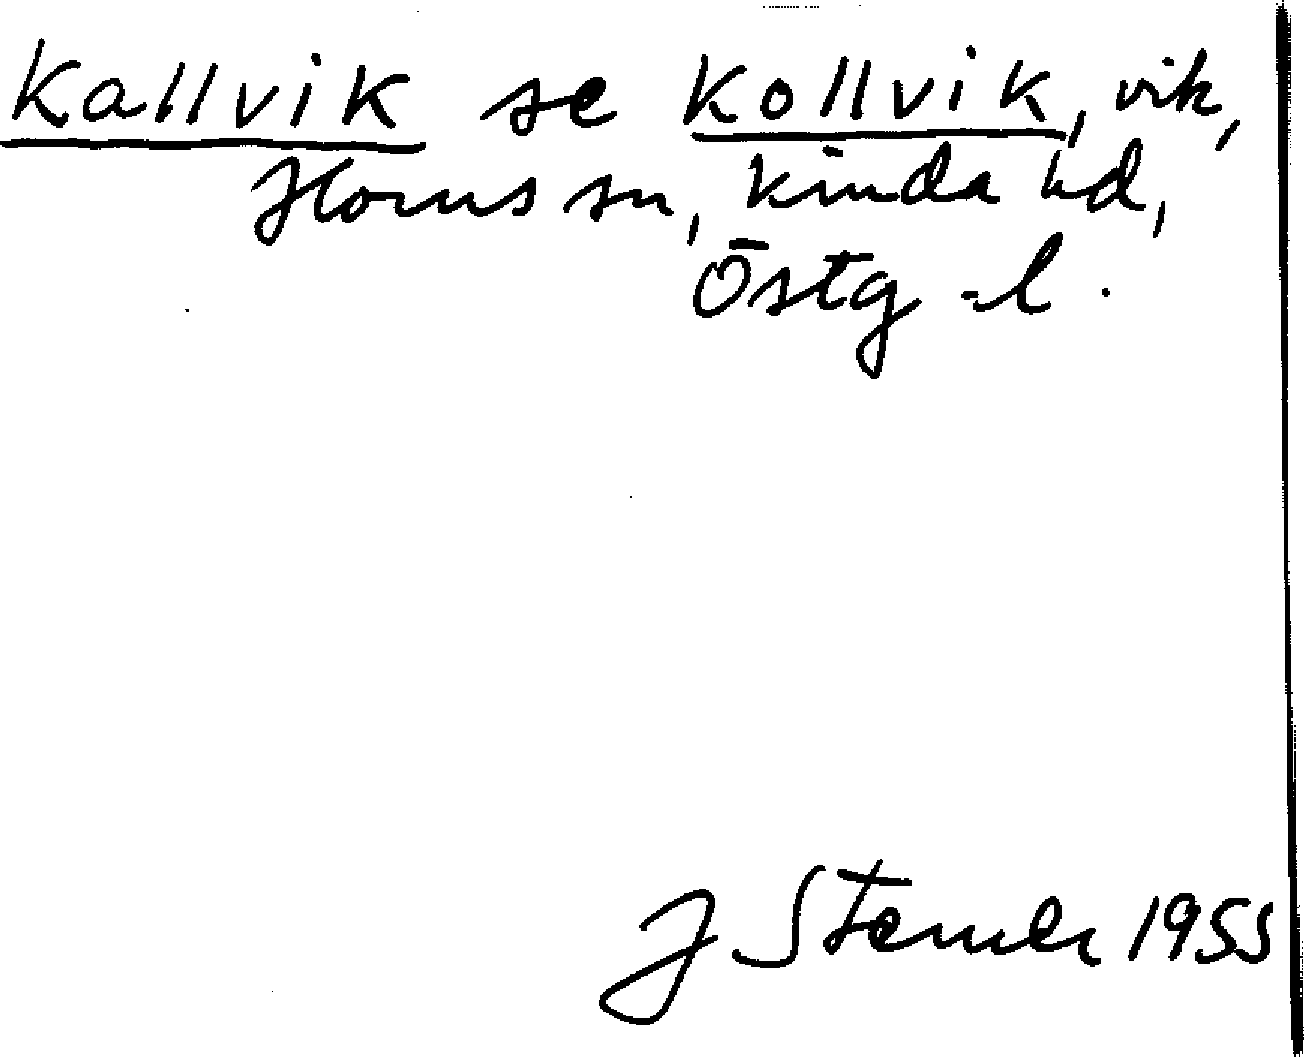 Kallvik se Kollvik, vik,
Horns sn, Kinda hd,
Östg-l.
J Sterner 1955